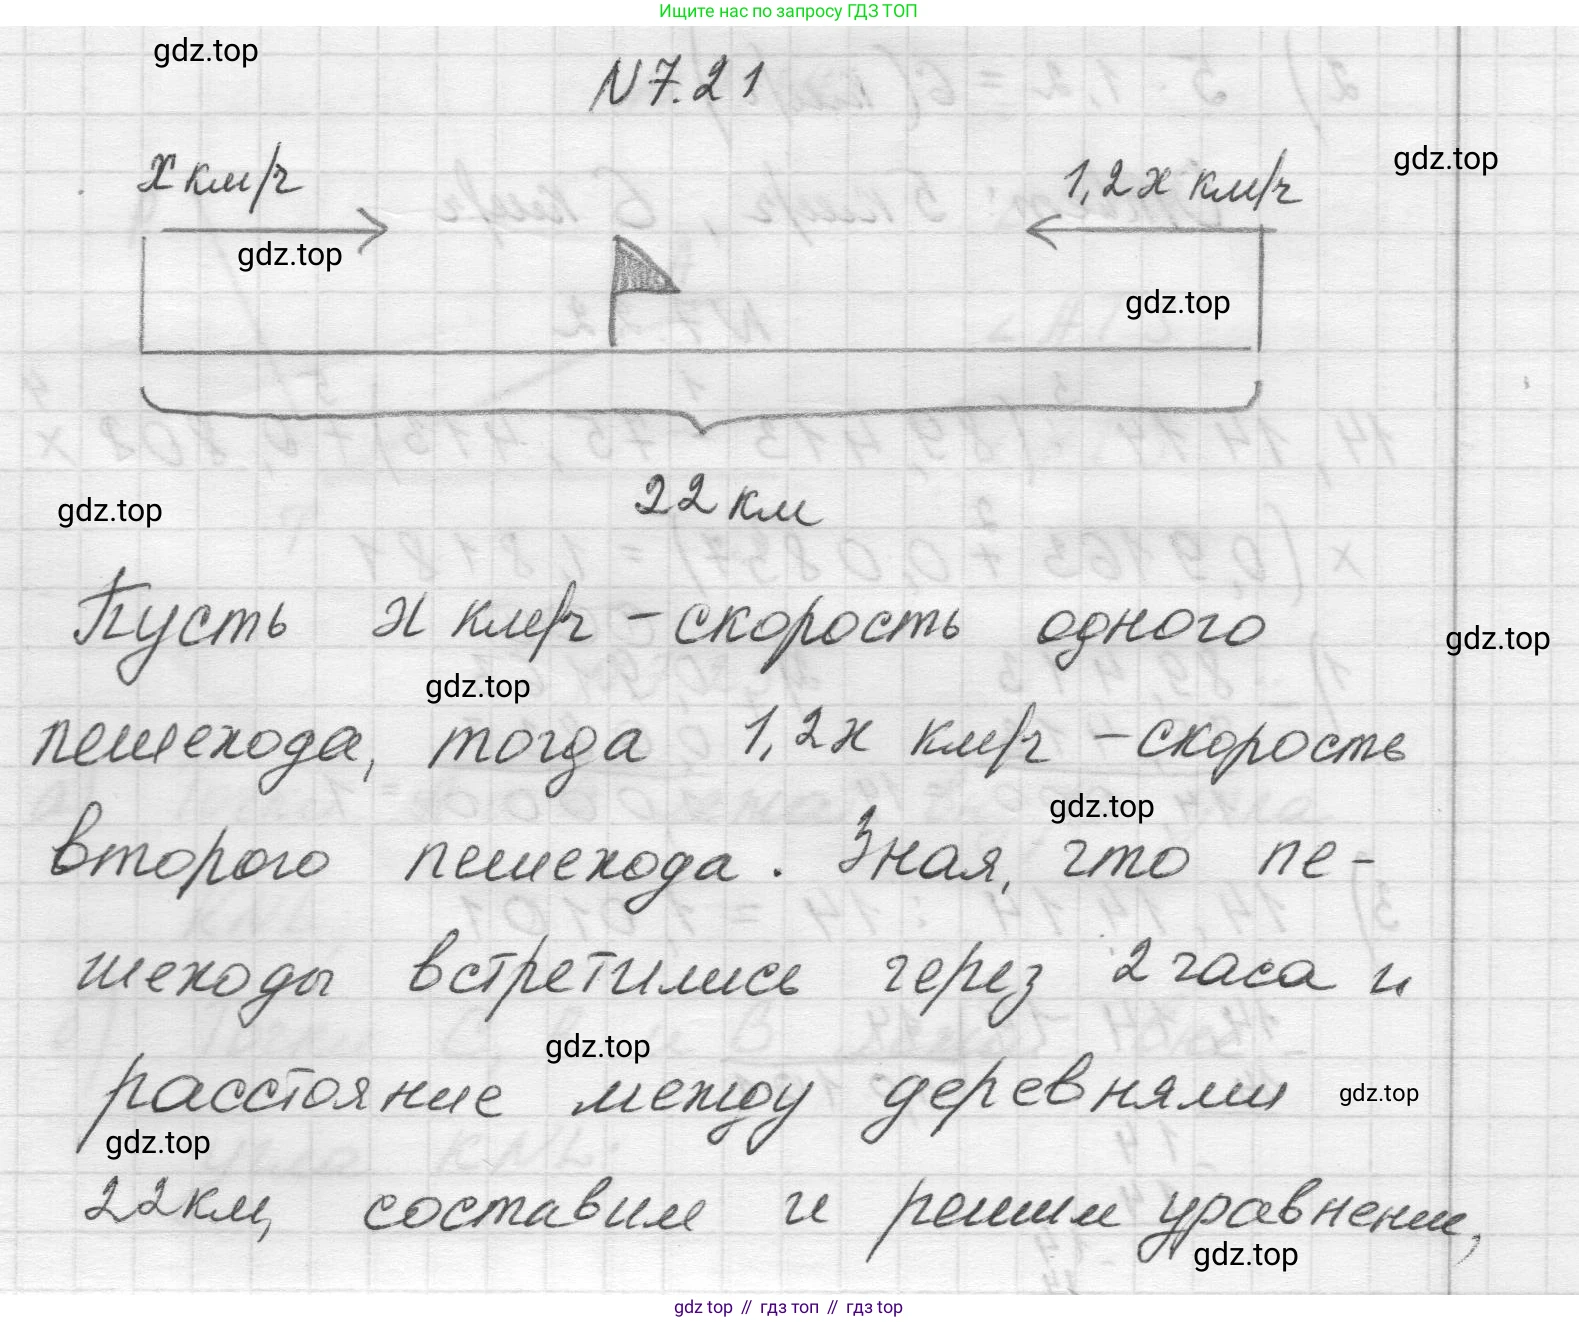 Ищите нас по запросу ГДЗ ТОП
gdz.top
N 7.21
x км/ч
1,2x км/ч
gdz.top
gdz.top
gdz.top
22 км
gdz.top
Пусть x км/ч – скорость одного
gdz.top
gdz.top
пешехода, тогда 1,2x км/ч – скорость
gdz.top
второго пешехода. Зная, что пе-
шеходы встретились через 2 часа и
gdz.top
расстояние между деревнями
gdz.top
gdz.top
22 км, составим и решим уравнение,
gdz.top
gdz top // гдз топ // гдз top